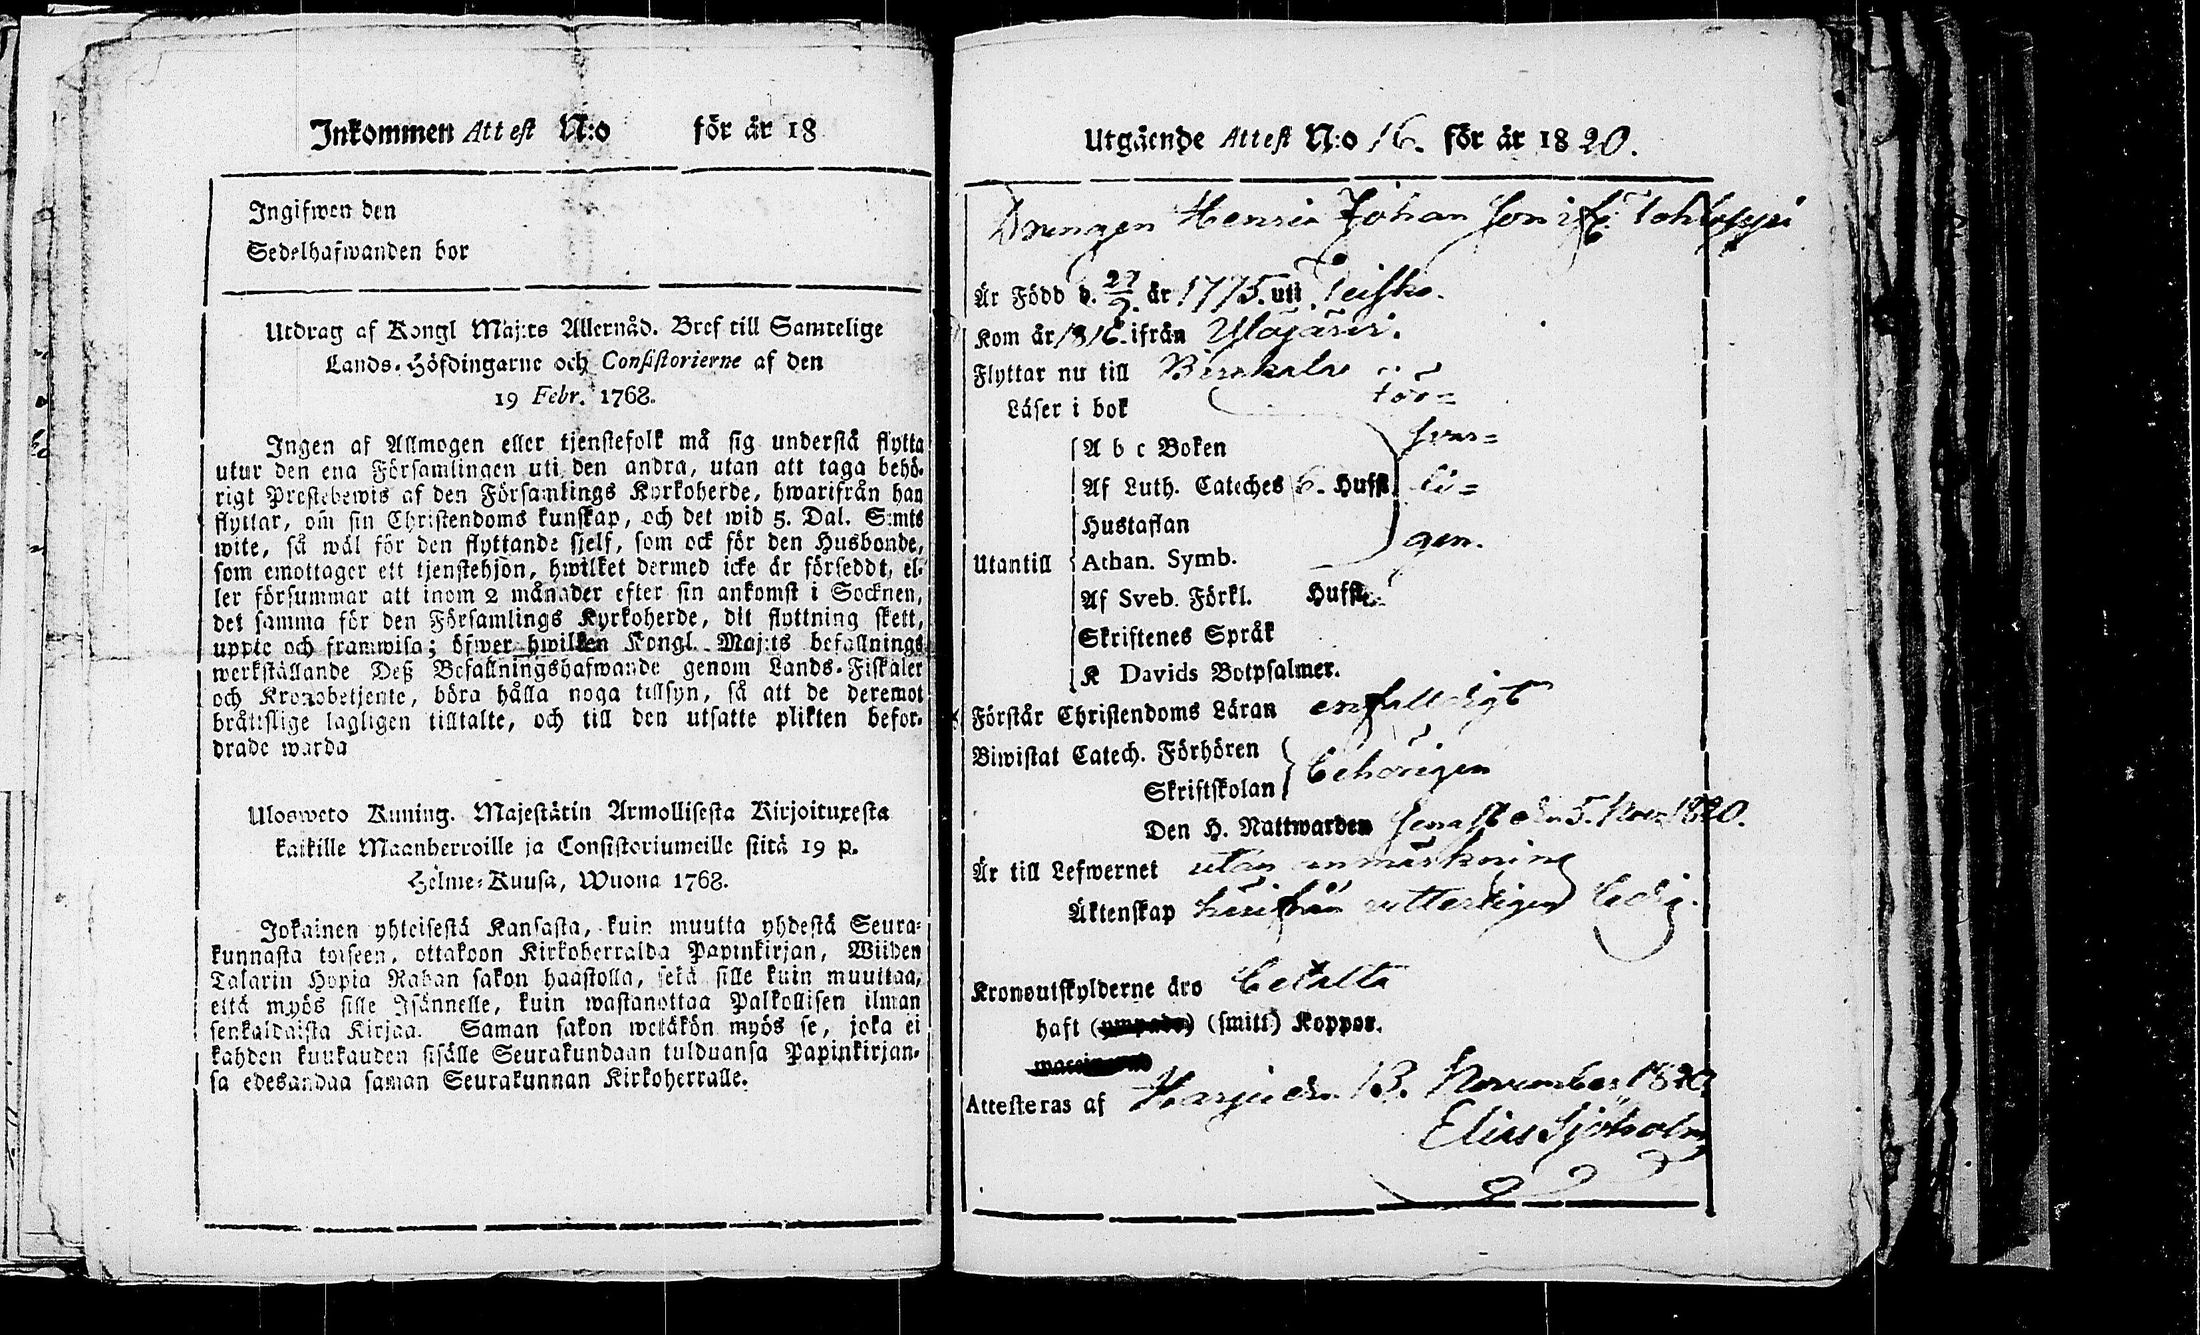 Inkommen Attest N:o för år 18
Ingifwen den
Sedelhafwanden bor
Utdrag af Kongl Maj:ts Allernåd. Bref till Samtelige
Lands-Höfdingarne och Consistorierne af den
19 Febr. 1768.
Ingen af Allmogen eller tjenstefolk må sig understå flytta
utur den ena Församlingen uti den andra, utan att taga behö-
rigt Prestebewis af den Församlings Kyrkoherde, hwarifrån han
flyttar, om sin Christendoms kunskap, och det wid 5. Dal. S:mts
wite, så wäl för den flyttande sjelf, som ock för den Husbonde,
som emottager ett tjenstehjon, hwilket dermed icke är försedt, el-
ler försummar att inom 2 månader efter sin ankomst i Socknen,
det samma för den Församlings Kyrkoherde, dit flyttning skett,
uppte och framwisa; öfwer hwilken Kongl. Maj:ts befallnings
werkställande Deß Befallningshafwande genom Lands-Fiskaler
och Kronobetjente, böra hålla noga tillsyn, så att de deremot
bråttslige lagligen tilltalte, och till den utsatte plikten befor-
drade warda
Ulosweto Kuning. Majestätin Armollisesta Kirjoituxesta
kaikille Maanherroille ja Consistoriumeille siitä 19 p.
Helme-Kuusa, Wuona 1768.
Jokainen yhteisestä Kansasta, kuin muutta yhdestä Seura-
kunnasta toiseen, ottakoon Kirkoherralda Papinkirjan, Wiiden
Talarin Hopia Rahan sakon haastolla, sekä sille kuin muuttaa,
että myös sille Isännelle, kuin wastanottaa Palkollisen ilman
senkaldaista Kirjaa. Saman sakon wetäkön myös se, joka ei
kahden kuukauden sisälle Seurakundaan tulduansa Papinkirjan-
sa edesandaa saman Seurakunnan Kirkoherralle.
Utgående Attest N:o 16. för år 1820.
Drengen Henric Johan Son ifr. Tohloppi
Är Född d. 27/9. år 1775. uti Teisko.
Kom år 1816. ifrån Ylöjärvi.
Flyttar nu till Birckala
Läser i bok för-
A b c Boken svar-
Af Luth. Cateches 6. Hufst. li-
Hustaflan gen.
Utantill Athan. Symb.
Af Sveb. Förkl. Hufst.
Skriftenes Språk
K Davids Botpsalmer.
Förstår Christendoms Läran enfalldigt
Biwistat Catech. Förhören
Skriftskolan behörigen
Den H. Nattwarden senast d. 5. Nov. 1820.
Är till Lefwernet utan anmärkning
Äktenskap härifrån ledig.
Kronoutskylderne äro betalta
haft (smitt) Koppor.
Attesteras af Harju den 13. November 1820
Elias Sjöholm